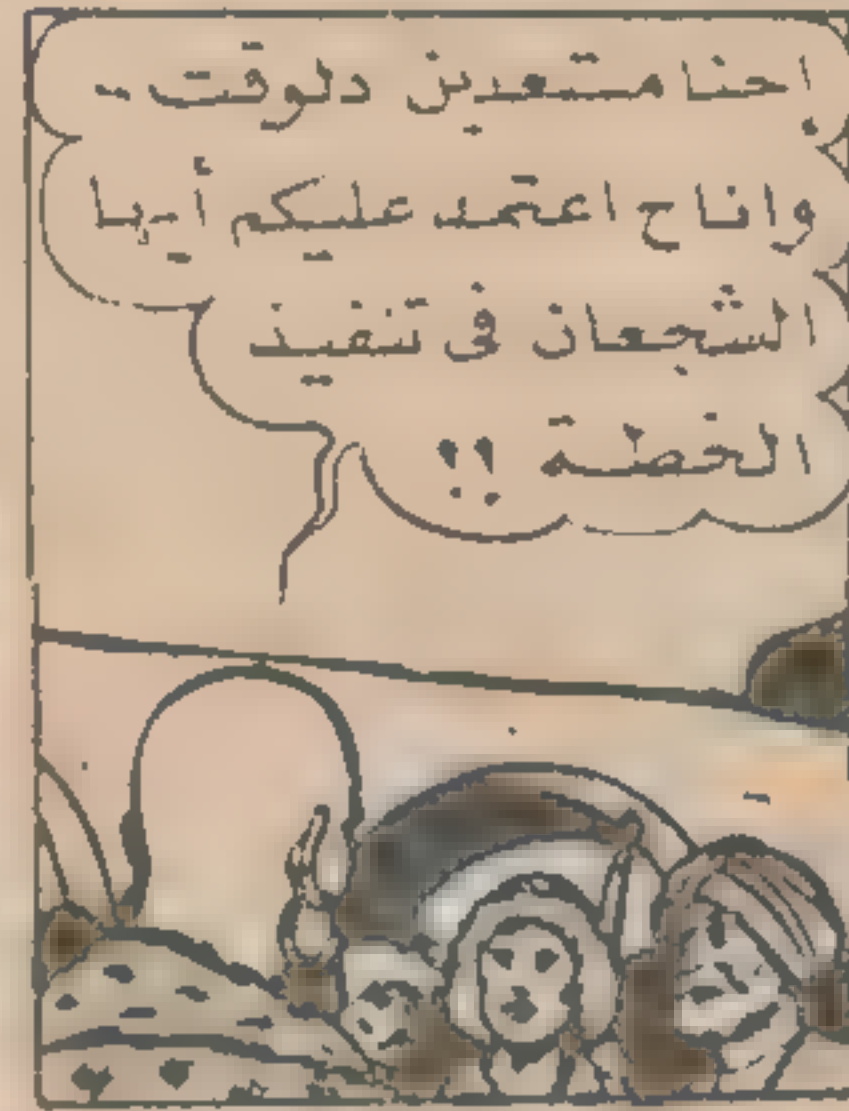 احنا مستعدين دلوقت -
وانا ح اعتمد عليكم أيها
الشجعان فى تنفيذ
الخطة !!